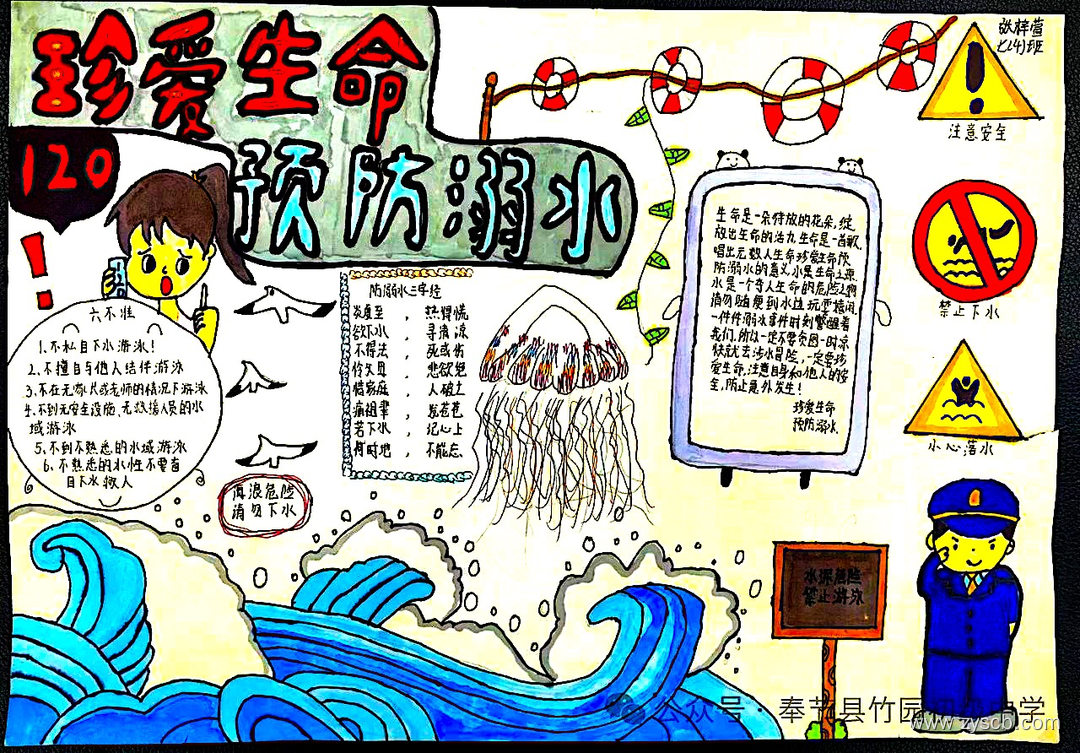 珍爱生命
预防溺水
张梓萱
七(4)班
120
注意安全
禁止下水
小心落水
六不准
1、不私自下水游泳!
2、不擅自与他人结伴游泳
3、不在无家长或老师的情况下游泳
4、不到无安全设施、无救援人员的水
域游泳
5、不到不熟悉的水域游泳
6、不熟悉的水性不要盲
目下水救人
防溺水三字经
炎夏至，热得慌
欲下水，寻清凉
不得法，死或伤
伶父母，悲欲绝
惜家庭，人破立
痛祖辈，
若下水，记心上
何时地，不能忘
生命是一朵绽放的花朵,绽
放出生命的活力生命是一首歌,
唱出无数人生命珍爱生命预
防溺水的意义,水是生命之源
水是一个夺人生命的危险之物
请勿随便到水性玩耍嬉闹
一件件溺水事件时刻警醒着
我们,所以一定不要贪图一时凉
快就去涉水冒险,一定要珍
爱生命,注意自身和他人的安
全,防止意外发生!
珍爱生命
预防溺水
浪危险
请勿下水
水深危险
禁止游泳
公众号·奉节县竹园中学
www.zyscb.com